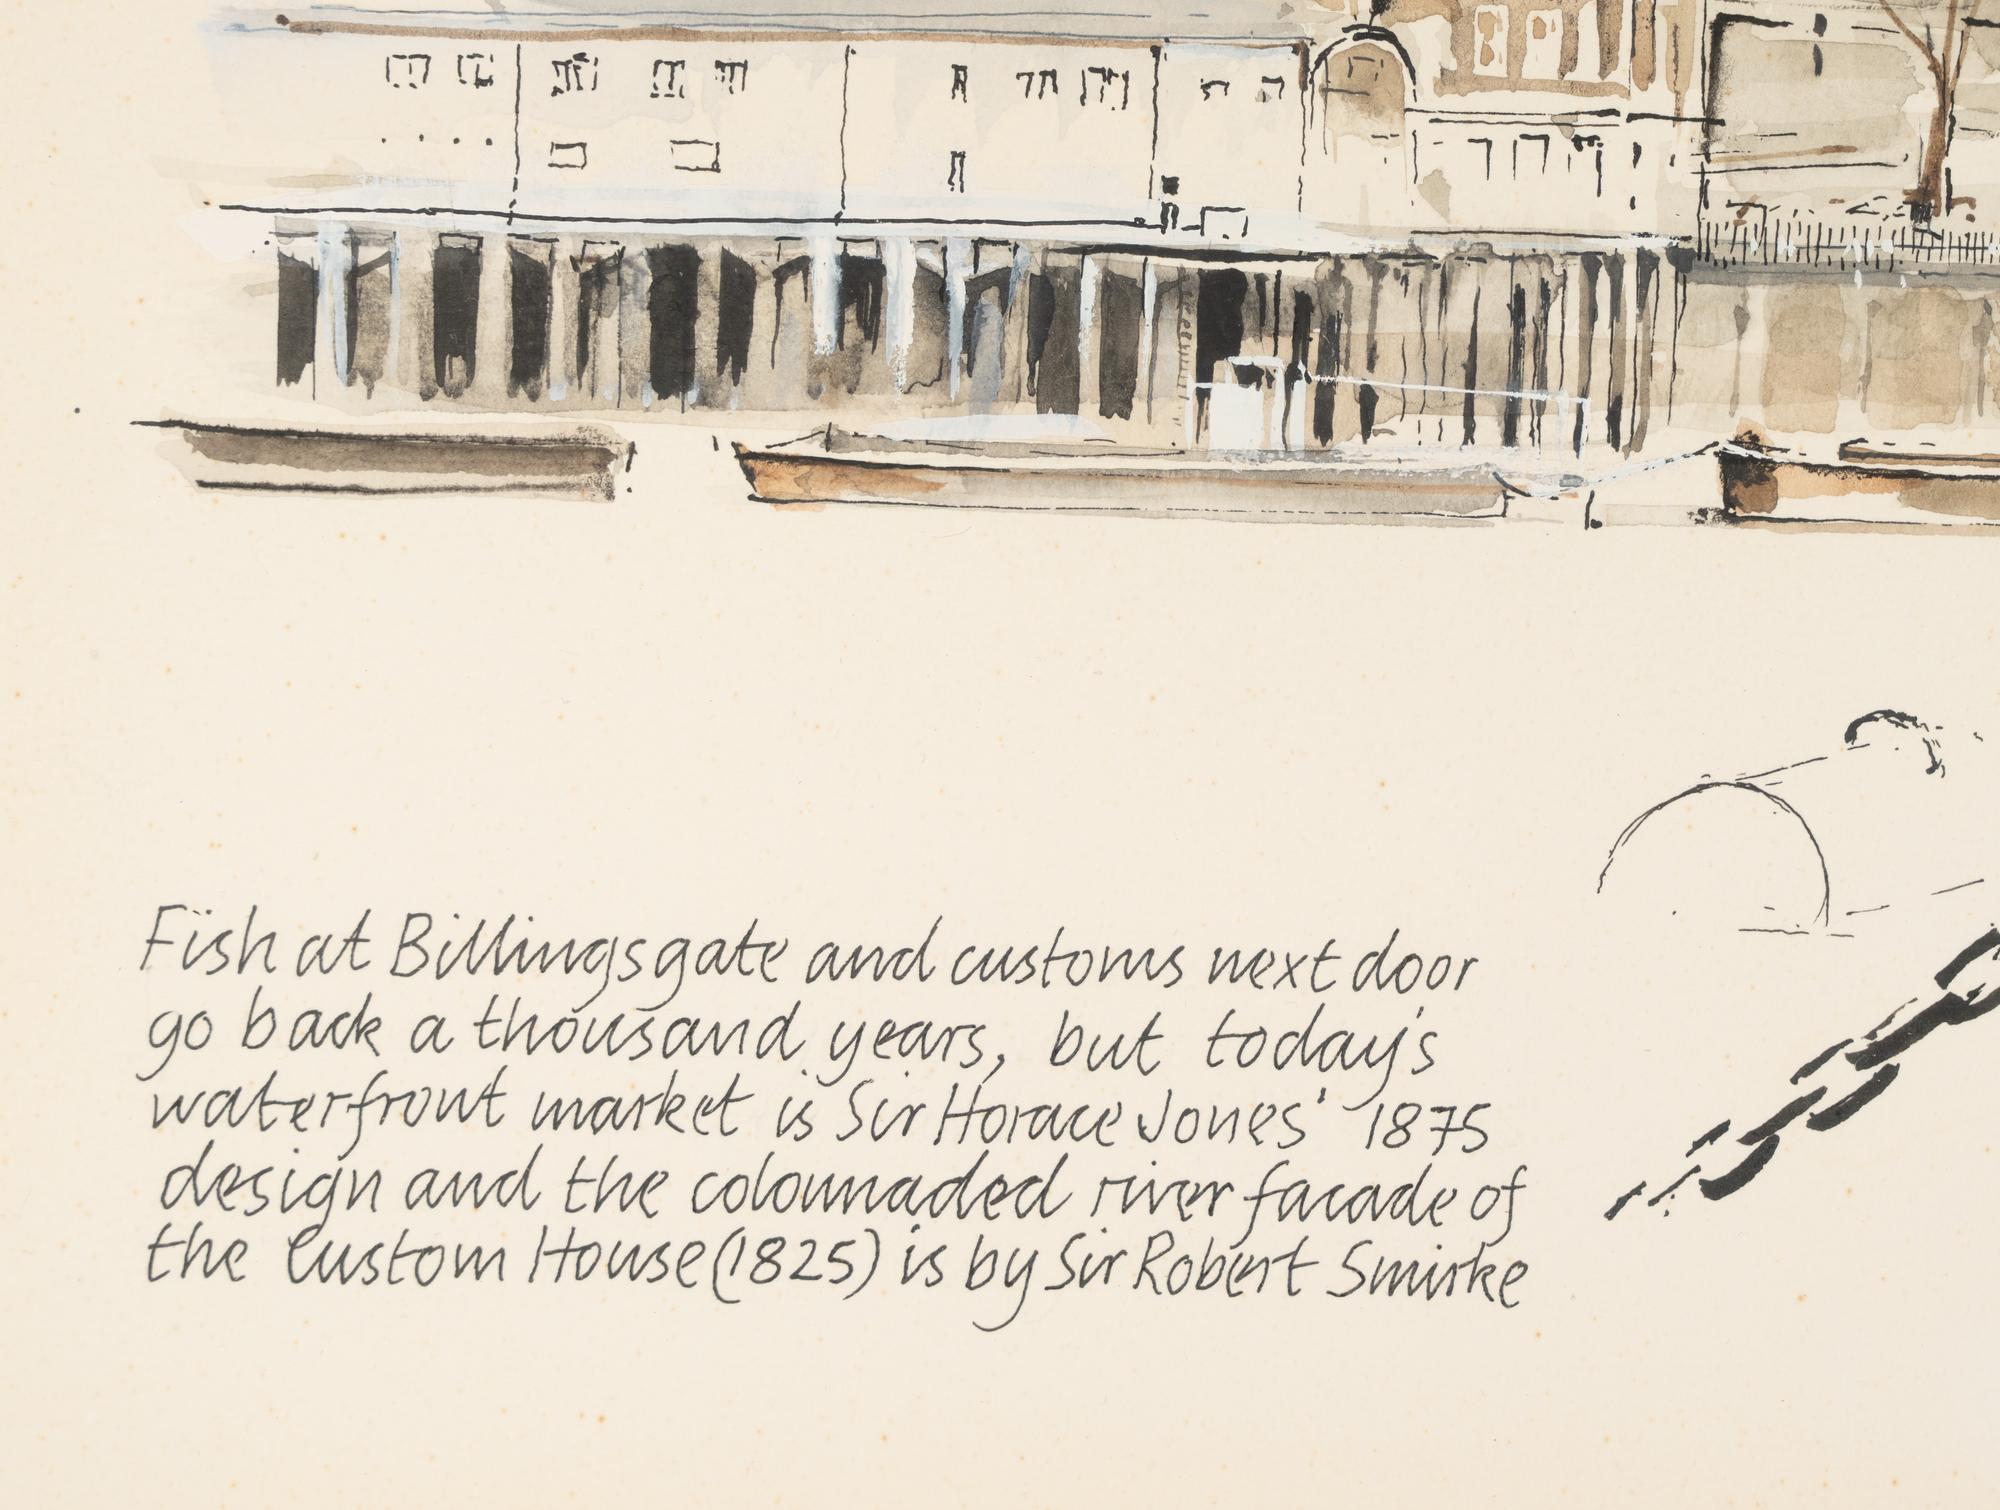 Fish at Billingsgate and customs next door
go back a thousand years, but today's
waterfront market is Sir Horace Jones' 1875
design and the colonnaded river facade of
the Custom House (1825) is by Sir Robert Smirke